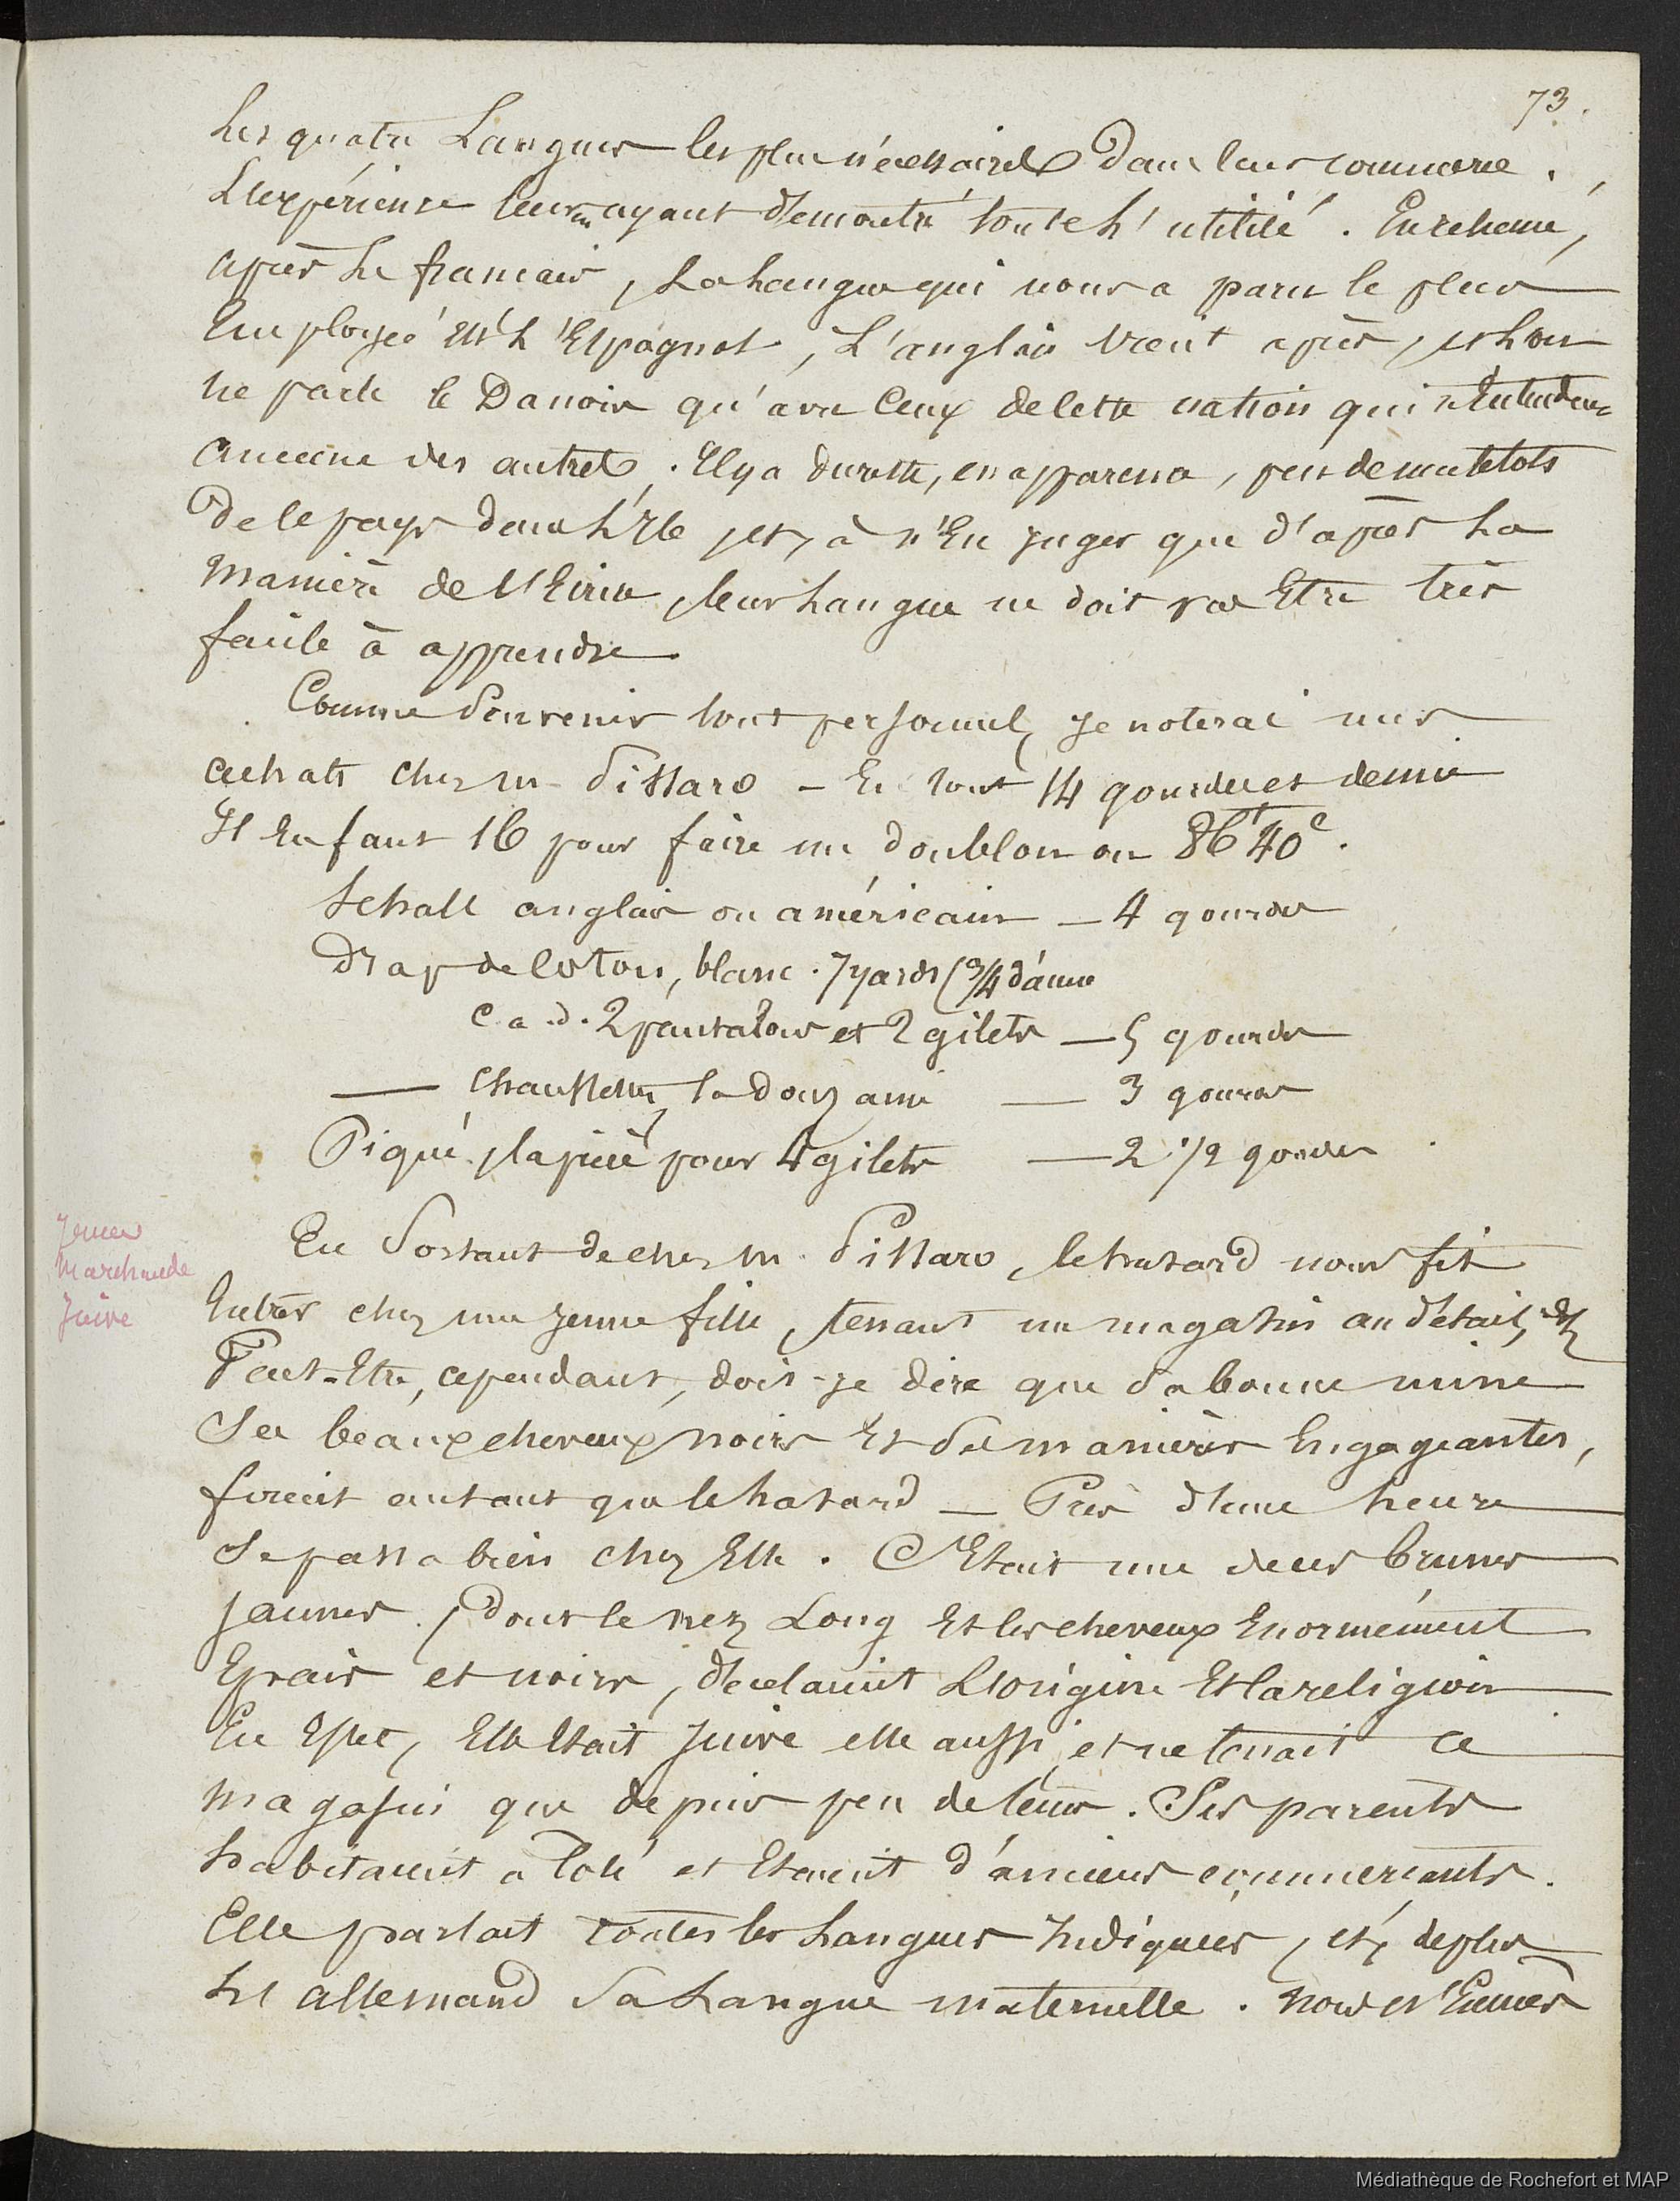 73.
Les quatre Langues les plus nécessaires Dans leur commerce.
L'expérience leur en ayant démontré toute l'utilité. En résumé,
après Le francais, La Langue qui nous a paru le plus
Employée est L'Espagnol, L'anglais vient après, et L'on
ne parle le Danois qu'avec Ceux de cette nation qui n'Entendent
Aucune des autres. Il y a du reste, en apparence, peu de matelots
De ce pays dans L'Ile, et, à n'En juger que d'après La
Manière de l'Ecrire, leur Langue ne doit pas Etre très
facile à apprendre
Comme Souvenir tout personnel, Je noterai mes
achats chez M. Pissaro – En tout 14 gourdes et demie
Il En faut 16 pour faire un doublon ou 86f 40c.
Schall anglais ou américain — 4 gourdes
Drap de Coton, blanc. 7 yards (3/4 d'aune
C. a. d. 2 pantalons et 2 gilets — 5 gourdes
— Chaussettes, la douzaine — 3 gourdes
Piqué, la pièce pour 4 gilets — 2 1/2 gourdes
Jeune
Marchande
Juive
En Sortant de chez M. Pissaro, le hasard nous fit
Entrer chez une Jeune fille, tenant un magasin au détail,
Peut-Etre, cependant, dois-je dire que Sa bonne mine
Ses beaux cheveux noirs Et Ses manières Engageantes,
firent autant que le hasard — Près d'une heure
Se passa bien chez Elle. C'Etait une de ces brunes
jaunes, Dont le nez Long Et les cheveux Enormément
Epais et noirs, décelaient L'origine Et la religion
En Effet, Elle Etait Juive elle aussi, et ne tenait Ce
Magasin que depuis peu de tems. Ses parents
habitaient à Coté et Etaient d'anciens commerçants.
Elle parlait toutes les Langues Indiquées, et, de plus
L'allemand Sa Langue maternelle. Nous